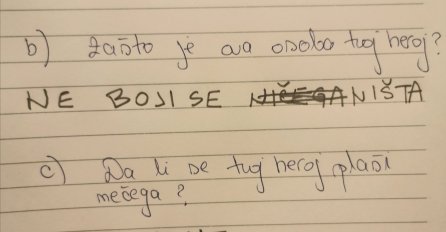 b) Zašto je ova osoba tvoj heroj?
NE BOJI SE NIČEGA NIŠTA
c) Da li se tvoj heroj plaši
nečega?